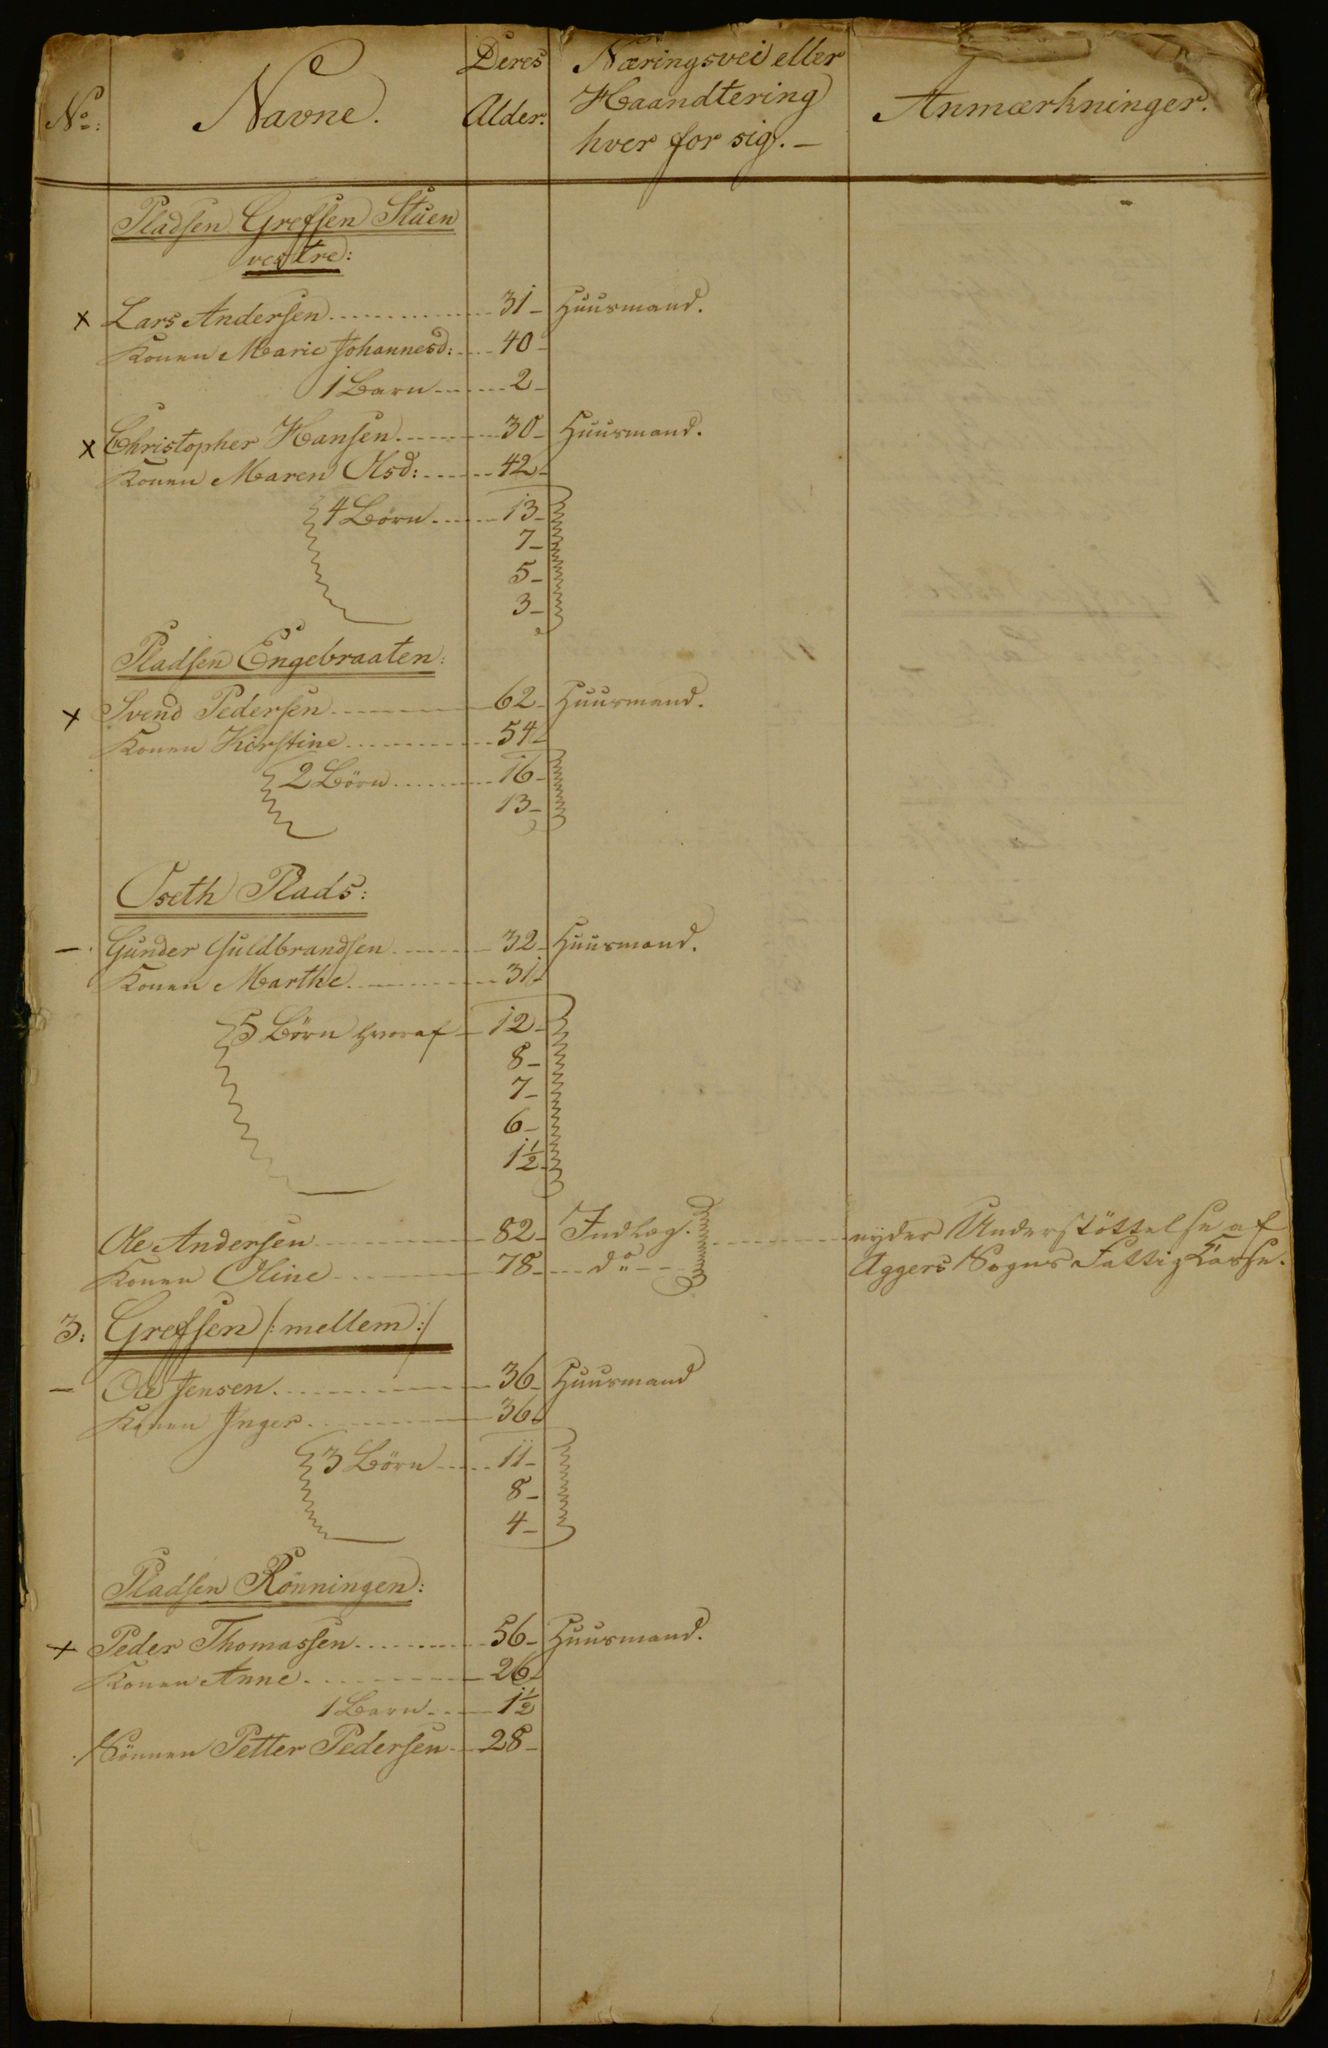 No: Navne. Deres Alder. Næringsvei eller Haandtering hver for sig. — Anmærkninger.
Pladsen Grefsen Stuen
vestre:
x Lars Andersen 31 — Huusmand.
Konen Marie Johannesd: 40 —
1 Barn 2 —
x Christopher Hansen 30 — Huusmand.
Konen Maren Olsd: 42 —
4 Börn 13 —
7 —
5 —
3 —
Pladsen Engebraaten:
x Svend Pedersen 62 — Huusmand.
Konen Kirstine 54 —
2 Börn 16 —
13 —
Oseth Plads:
— Gunder Guldbrandsen 32 — Huusmand.
Konen Marthe 31 —
5 Börn hvoraf — 12 —
8 —
7 —
6 —
1½ —
Ole Andersen 82 — Indlæg. nyder Understöttelse af
Konen Oline 78 — do Aggers Sogns Fattig Kasse.
3: Grefsen /: mellem :/
— Ole Jensen 36 — Huusmand
Konen Inger 36
3 Börn 11 —
8 —
4 —
Pladsen Rönningen:
x Peder Thomassen 56 — Huusmand.
Konen Anne 26 —
1 Barn 1½
Sönnen Petter Pedersen 28 —